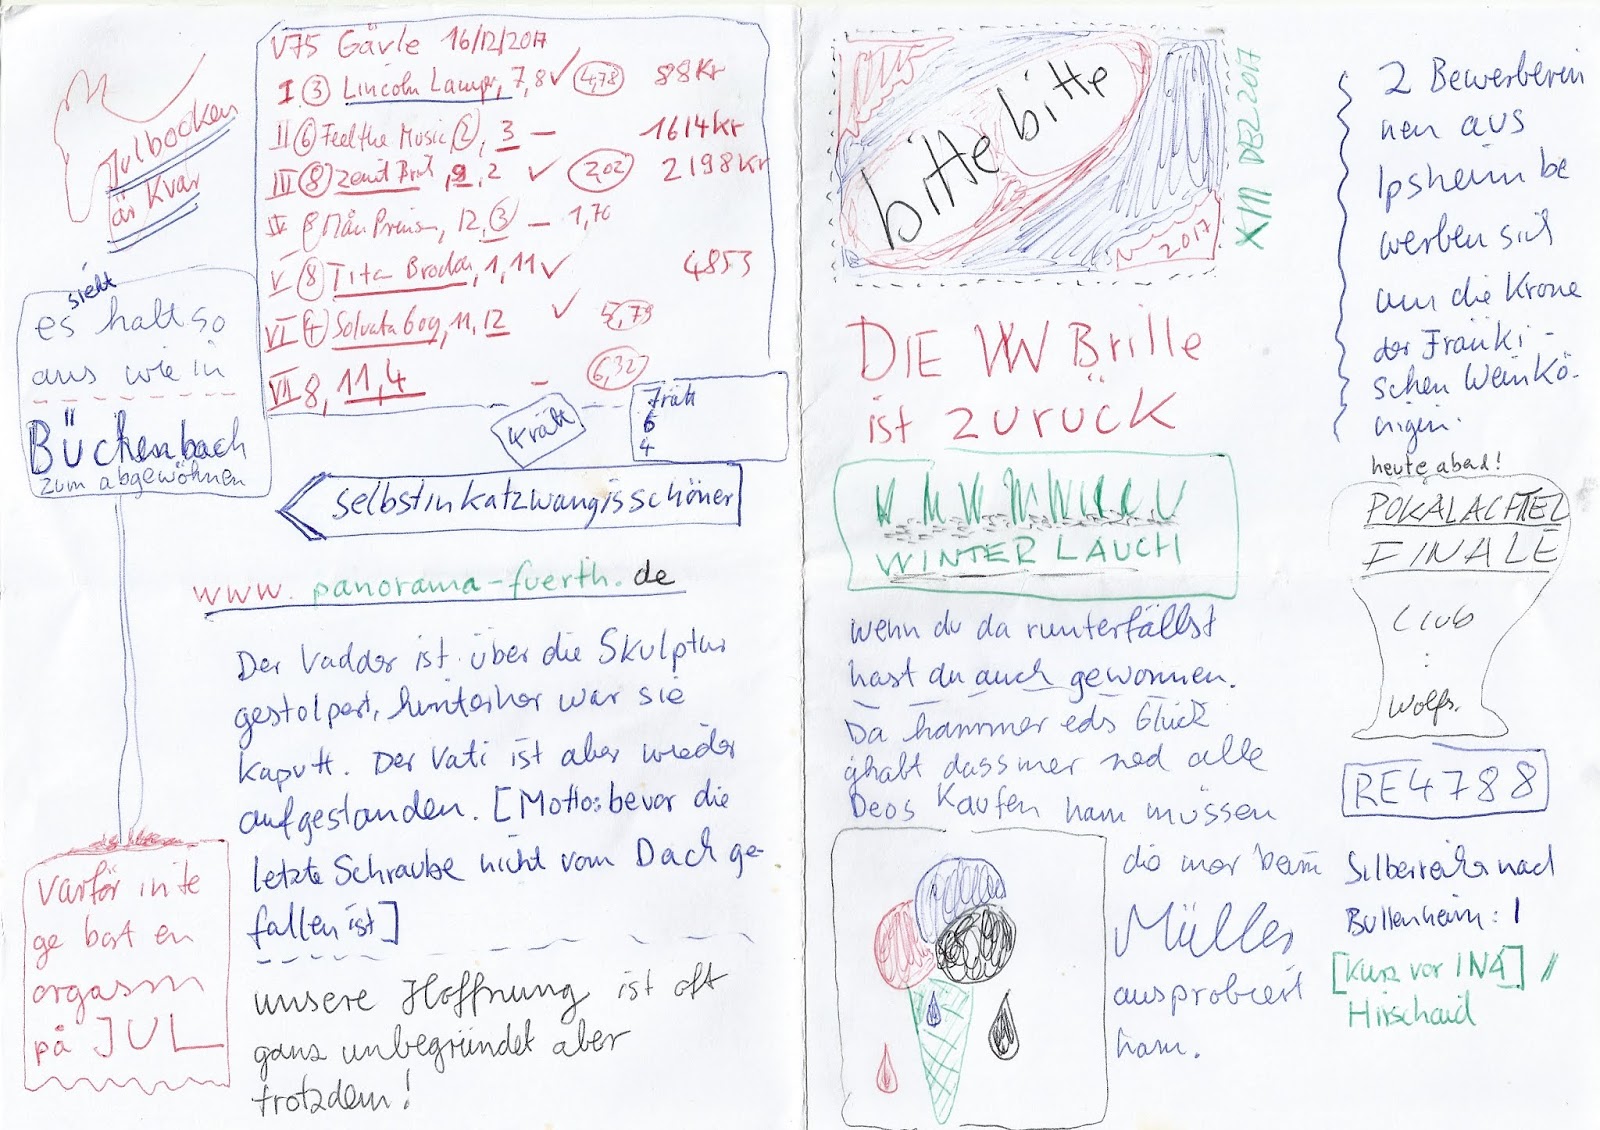 Julbocken
är Kvar
V75 Gävle 16/12/2017
I ③ Lincoln Lamp, 7,8 ✓ 4,78 88Kr
II ⑥ Feel the Music ②, 3 — 1614Kr
III ⑧ Zenit Brick, 9, 2 ✓ 2,02 2198Kr
IV 8 Mån Preussen, 12, ③ — 1,76
V ⑧ Titan Brodda, 1, 11 ✓ 4853
VI ④ Solvato Gog, 11, 12 ✓ 5,79
VII 8, 11, 4 — 6,32
4 rätt
7 rätt
6
4
sieht
es halt so
aus wie in
Büchenbach
zum abgewöhnen
selbstinkatzwangisschöner
www.panorama-fuerth.de
Der Vadder ist über die Skulptur
gestolpert, hinterher war sie
Kaputt. Der Vati ist aber wieder
aufgestanden. [Motto: bevor die
letzte Schraube nicht vom Dach ge-
fallen ist]
varför inte
ge bort en
orgasm
på JUL
unsere Hoffnung ist oft
ganz unbegründet aber
trotzdem!
bitte bitte
2017
XIII DEZ 2017
DIE VW Brille
ist zurück
WINTER LAUCH
wenn du da runterfällst
hast du auch gewonnen.
Da hammer eds Glück
ghabt dass mer ned alle
Deos Kaufen ham müssen
die mer beim
Müller
ausprobiert
ham.
2 Bewerberin
nen aus
Ipsheim be
werben sich
um die Krone
der Fränki-
schen Weinkö-
nigin.
heute abend!
POKALACHTEL
FINALE
Club
:
Wolfs.
RE 4788
Silberreiher nach
Bullenheim: 1
[Kurz vor IN4] //
Hirschaid